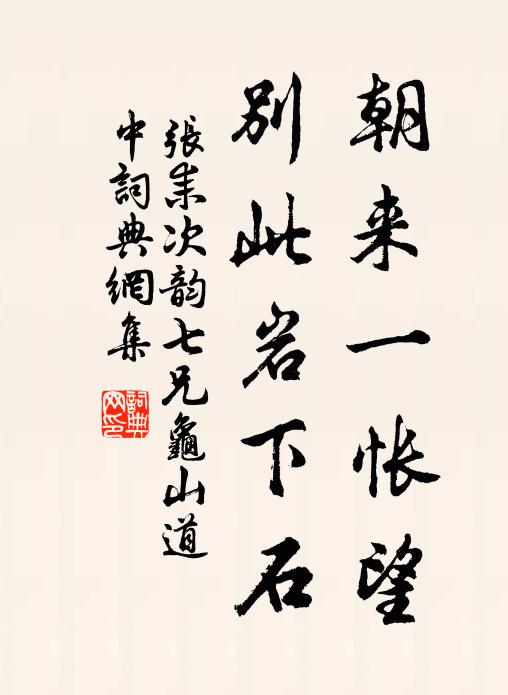 朝来一怅望
別此岩下石
張耒次韵七兄龜山道
中詞典網集
詞典网印